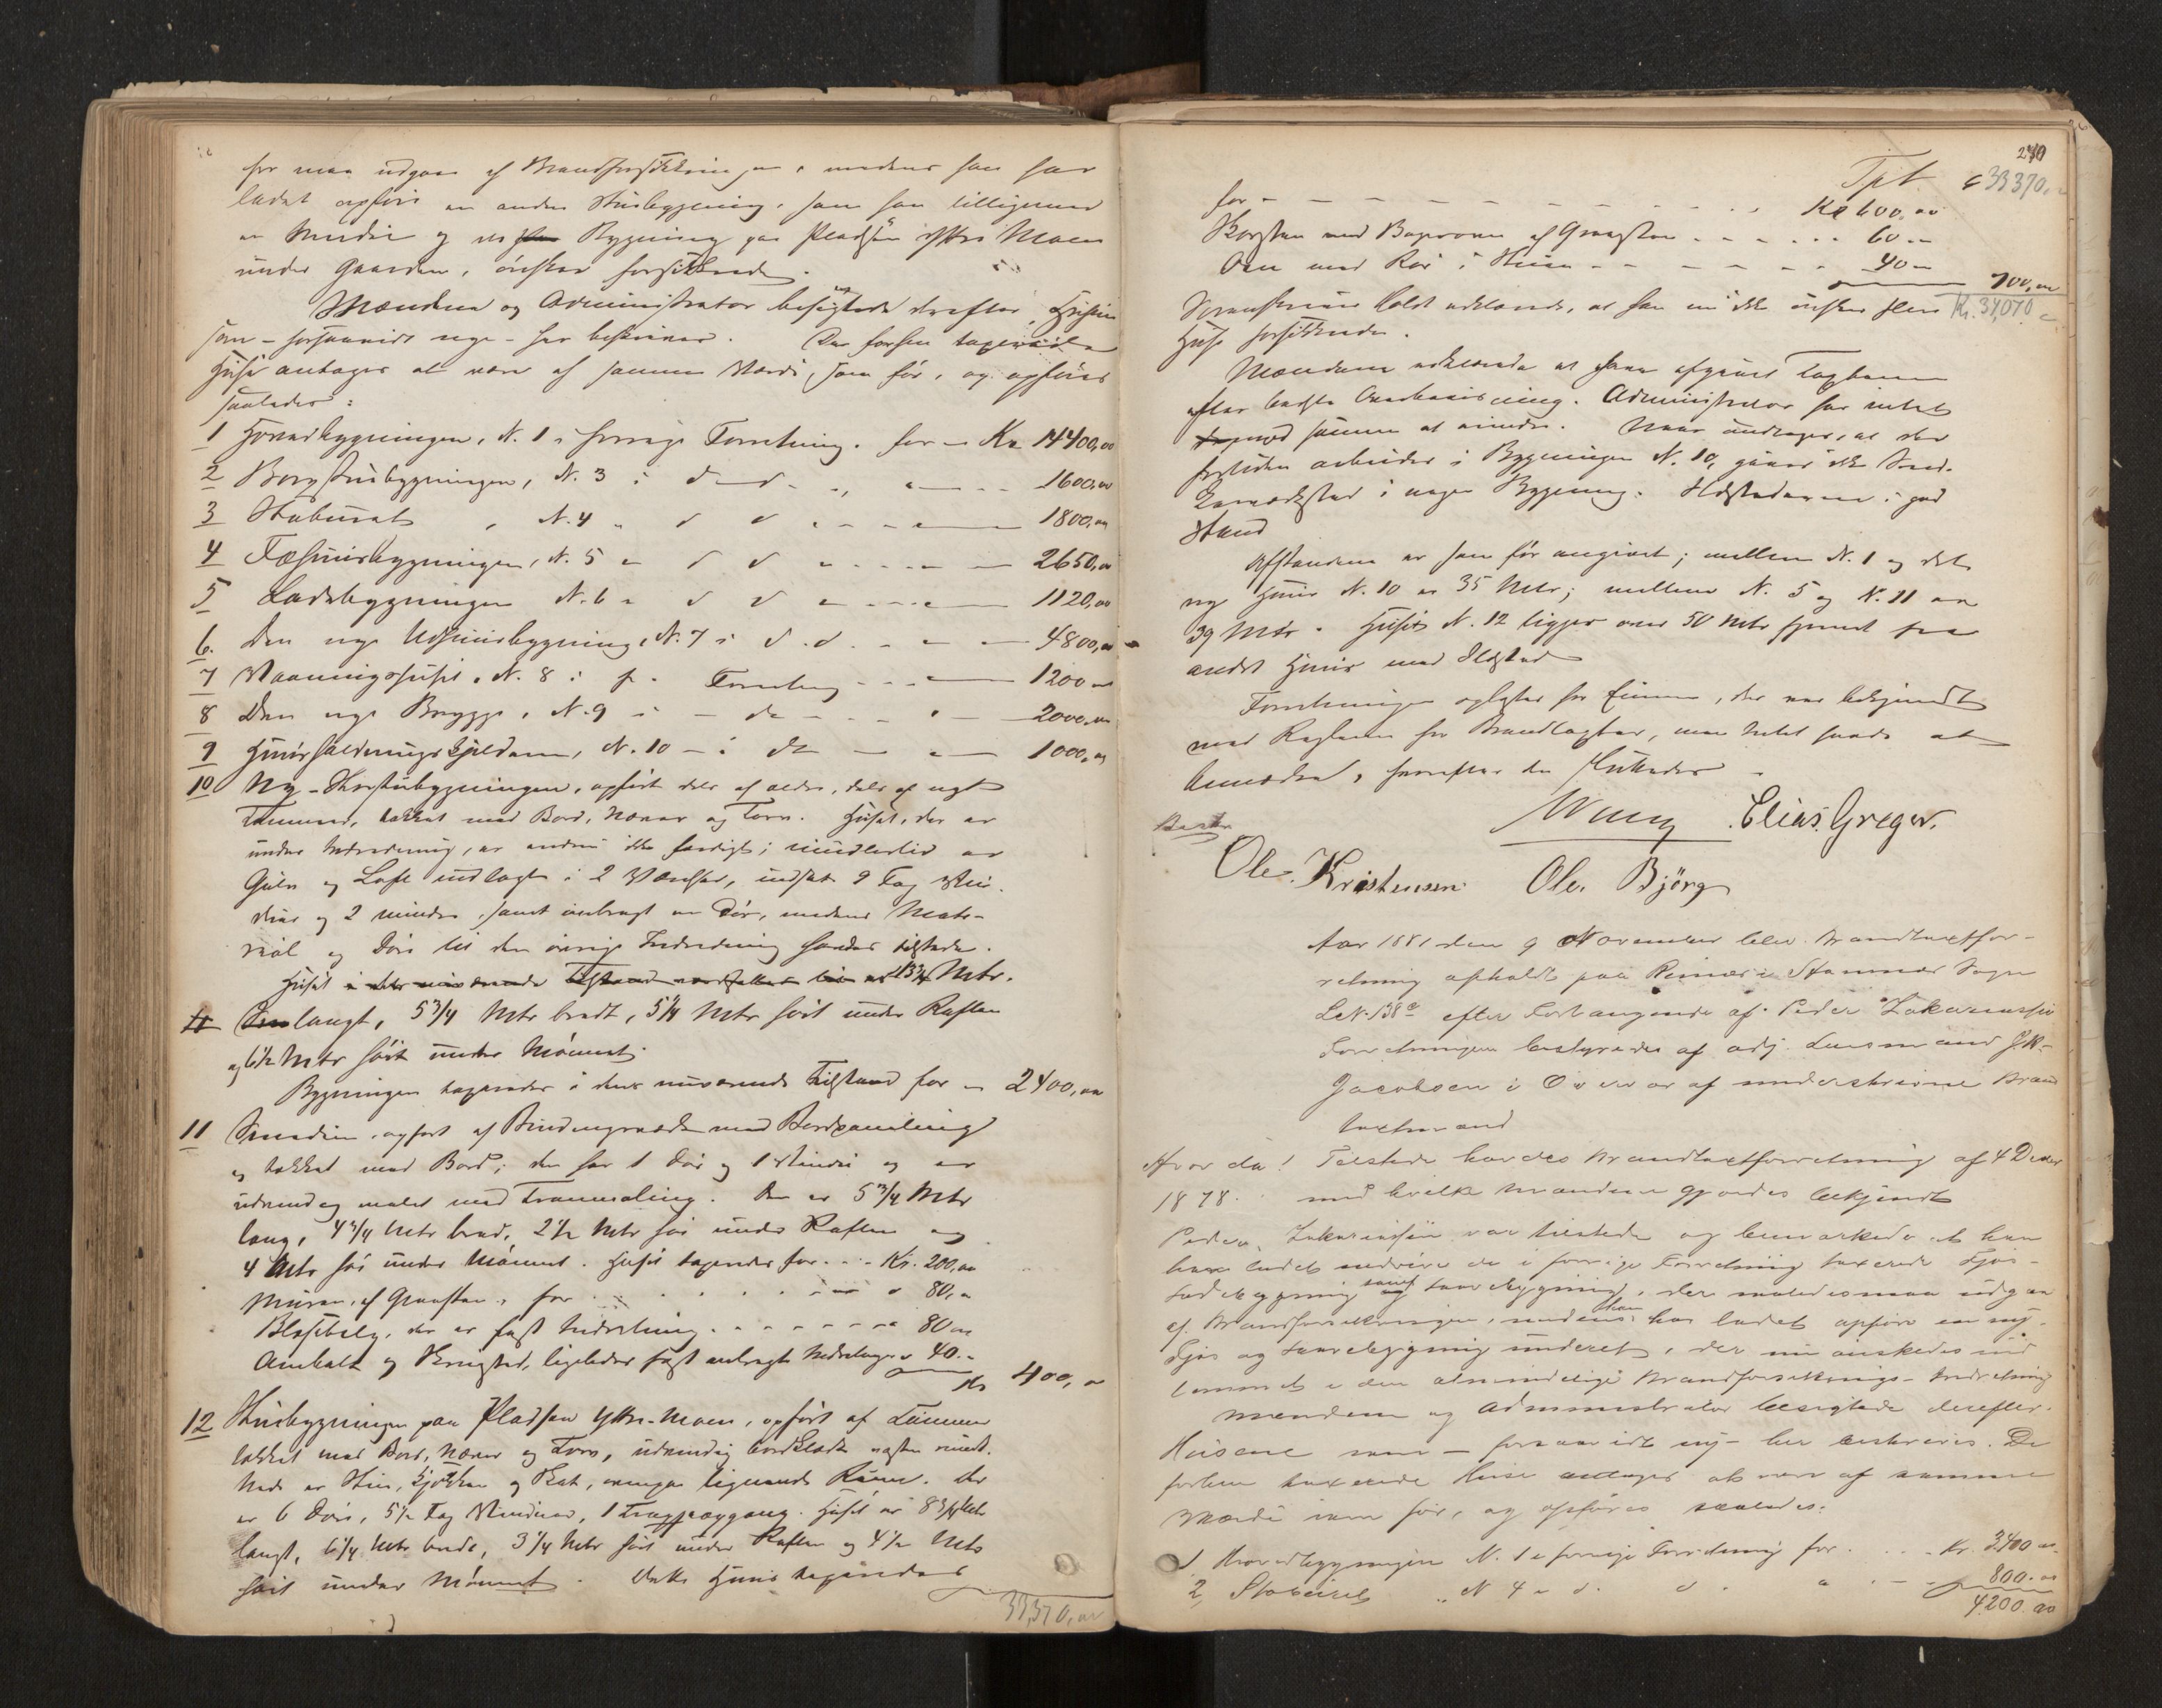 for maa udgaa af Brandforsikringen, medens han har
ladet opføre en anden Stuebygning, som han tilligemed
en Smedie og en Bygning paa Pladsen Yttre Moen
under Gaarden, ønsker forsikrede.
Mændene og Administrator besigtede derefter Husene
som – forsaavidt nye – her beskrives. De forhen taxerede
Huse antages at være af samme Værdi, som før, og opføres
saaledes:
1 Hovedbygningen, N. 1 i forrige Forretning. for - Kr 14400,00
2 Borgstubygningen, N. 3 i d d - - 1600,00
3 Stabburet, N. 4 " d d - - 1800,00
4 Fæhusbygningen, N. 5 " d d - - 2650,00
5 Ladebygningen N. 6 " d d - - 1120,00
6. Den nye Udhusbygning, N. 7 i d. d. - - 4800,00
7 Vaaningshuset, N. 8 i f. Forretning - - 1200 -
8 Den nye Brygge, N. 9 - - do - - 2000,00
9 Huusholdningskjeldern, N. 10 - i do - - 1000,00
10 Ny-Stuebygningen, opført dels af ældre, dels af nyt
Tømmer, tækket med Bord, Næver og Torv. Huset, der er
under Indredning, er endnu ikke færdigt; imidlertid er
Gulv og Loft indlagt i 2 Værelser, indsat 9 Fag Vin-
duer og 2 mindre, samt anbragt en Dør, medens Mate-
rial og Døre til den øvrige Indredning havdes tilstede.
Huset i dets nuværende Tilstand Mtr.
langt, 5 3/4 Mtr bredt, 5 1/4 Mtr høit under Raften
og 6 1/2 Mtr høit under Mønnet.
Bygningen taxeredes i dens nuværende Tilstand for - 2400,00
11 Smedien, opført af Bindingsværk med Bordpanling
og tækket med Bord; den har 1 Dør og 1 Vindu og er
udvendig malet med Tranmaling. Den er 5 3/4 Mtr
lang, 4 3/4 Mtr bred, 2 1/2 Mtr høi under Raften og
4 Mtr høi under Mønnet. Huset taxeredes for - - Kr. 200,00
Muren, af Graasten, for - - 80,-
Blæsebælg, der er fast Indretning - - 80 00
Ambolt og Skruestad, ligeledes fast anbragt Indretning " 40.-
Kr 400,-
12 Stuebygningen paa Pladsen Yttre-Moen, opført af Tømmer
tækket med Bord, Næver og Torv, udvendig bordklædt næsten rundt.
Nede er Stue, Kjøkken og Gat, ovenpaa lignende Rum. Der
er 6 Døre, 5 1/2 Fag Vinduer, 1 Trappeopgang. Huset er 8 3/4 Mtr
langt, 6 1/4 Mtr bredt, 3 1/4 Mtr høit under Raften og 4 1/2 Mtr
høit under Mønnet. Dette Huus taxeredes
33,370,00
270
Tpt 33370,-
for - - - Kr 600,00
Skorsten med Bagerovn af Graasten - - 60 -
Ovn med Rør i Stuen - - 40 -
700,00
Holst erklærede, at han nu ikke ønsker flere Kr. 34,070
Huse forsikrede.
Mændene erklærede at have afgivet Taxterne
efter bedste Overbeviisning. Administrator har intet
ved samme at erindre. Naar undtages, at der
fortiden arbeides i Bygningen N. 10, gives ikke Sned-
kerværksted i nogen Bygning. Ildstederne i god
Stand
Afstandene er som før angivet; mellem N. 1 og det
nye Huus N. 10 er 35 Mtr; mellem N. 5 og N. 11 er
39 Mtr. Huset N. 12 ligger over 50 Mtr fjernet fra
andet Huus med Ildsted
Forretningen oplæstes for Eieren, der var bekjendt
med Reglerne for Brandtaxter, men intet havde at
bemærke, hvorefter den sluttedes -
Elias Greger.
Ole Kristensen Ole Björg
Aar 1881 den 9 November blev Brandtaxtfor-
retning afholdt paa i Stamnes Sogn
LN. 138 a efter Forlangende af Peder Zakariassen
Forretningen bestyredes af adj. Lensmand J. K.
Jacobsen i Overvær af underskrevne Brand
taxtmænd
Hvorda! Tilstede havdes Brandtaxtforretning af 4 Decbr
1878. med hvilke Mændene gjordes bekjendt
Peder Zakariassen var tilstede og bemærkede at han
have ladet nedrive de i forrige Forretning taxerede Fjøs-
ladebygning samt Ladebygning, der saaledes maa udgaa
af Brandforsikringen, medens han har ladet opføre en ny
Fjøs og Ladebygning , der nu ønskedes ind
lemmet i den almindelige Brandforsikrings-Indretning
Mændene og Administrator besigtede derefter
Husene som – forsaavidt ny – her beskrives. De
forhen taxerede Huse antages at være af samme
Værdi som før, og opføres saaledes:
1 Hovedbygningen N. 1 i forrige Forretning for - - Kr. 3400 -
2 Stabburet " N 4 " d. d. " - - 800.00
4200.00